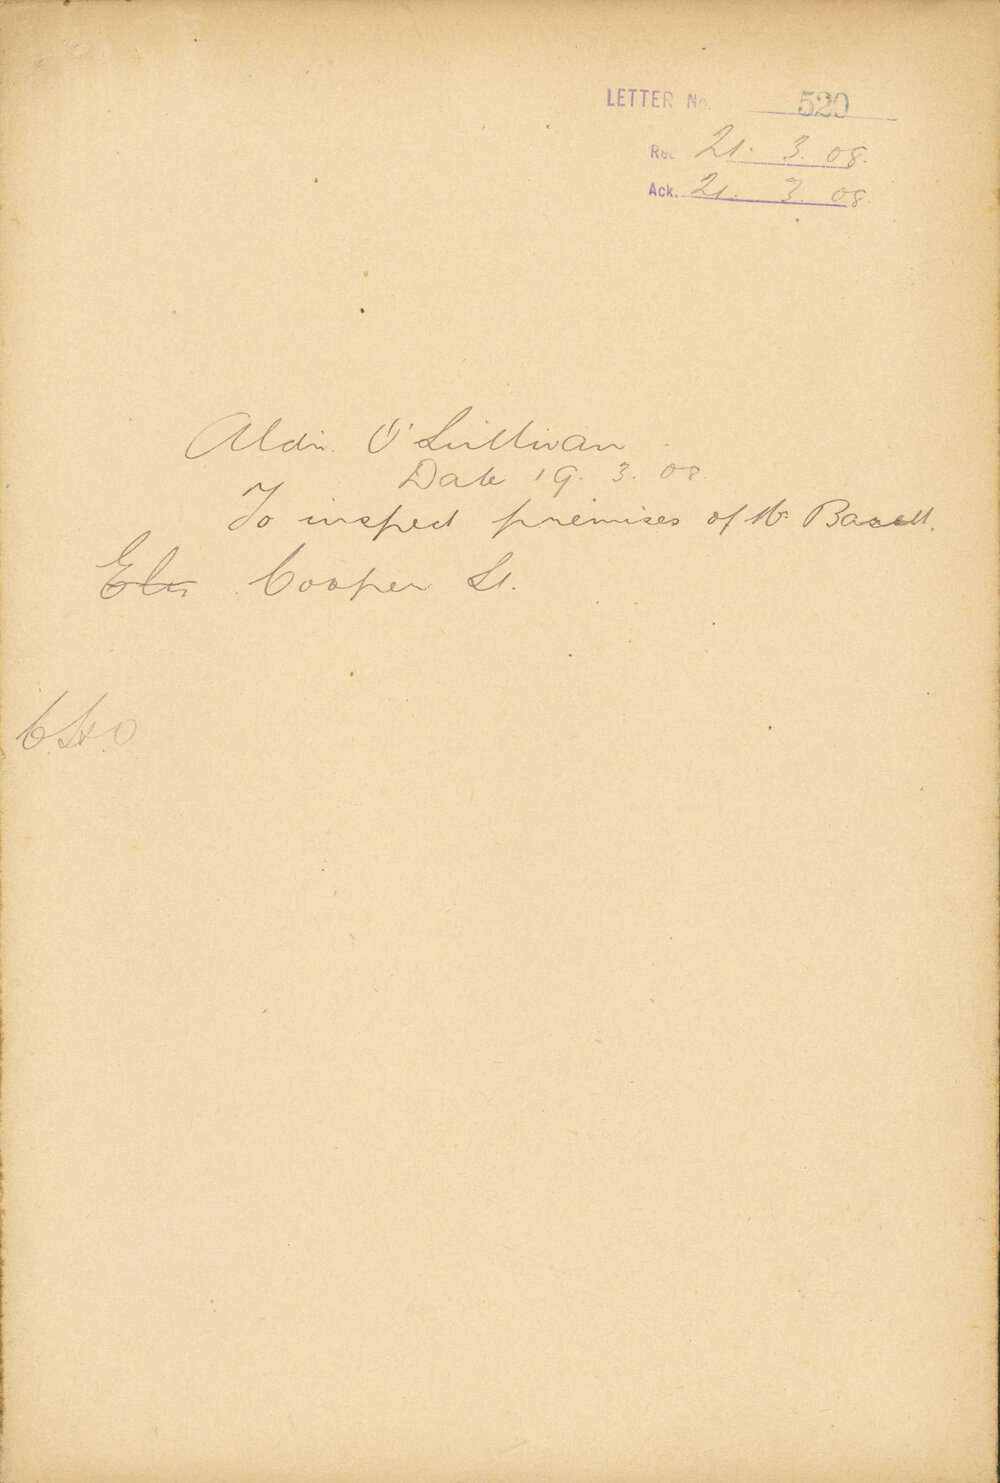 LETTER No. 520
Rec 21. 3. 08.
Ack. 21. 3. 08.
Aldn. O'Sullivan
Date 19. 3. 08.
To inspect premises of Mr
Cooper St.